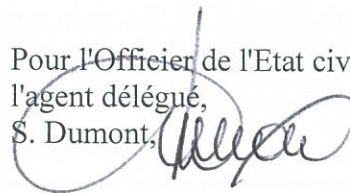 Pour l'Officier de l'Etat civ
l'agent délégué,
S. Dumont,